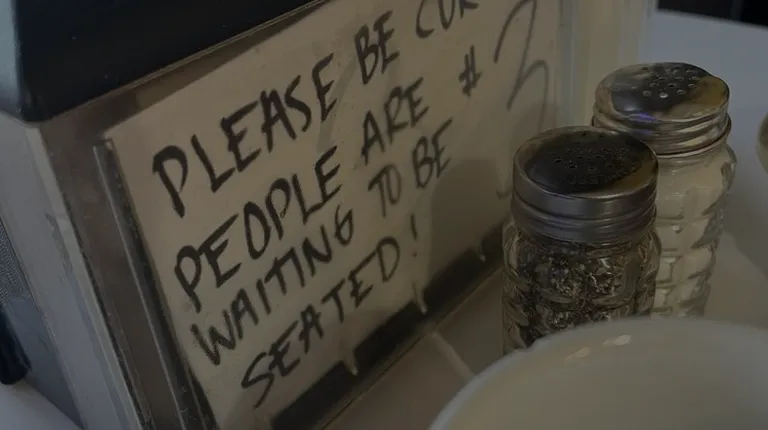 PLEASE BE
PEOPLE ARE #
WAITING TO BE
SEATED!